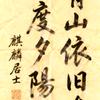 青山依旧在
度夕陽
麒麟居士